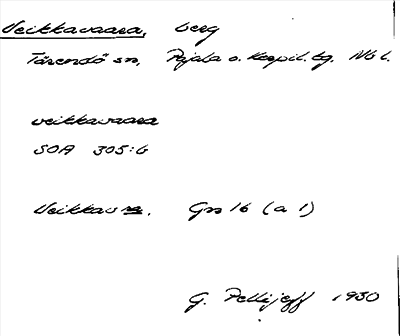 Veikkavaara, berg
Tärendö sn, Pajala o. Korpil. tg. Nb l.
veikkavaara
SOA 305:6
Veikkav ra. Gss 16 (a 1)
G. Pellijeff 1930